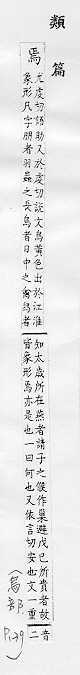 類篇
焉
尤虔切語助又於虔切說文焉黃色出於江淮
象形凡字朋者羽蟲之長烏者日中之禽舄者
知太歲所在燕者請子之候作巢避戊己所貴者故
皆象形焉亦是也一曰何也又依言切安也文一重
音
二
〈烏部. P.139〉